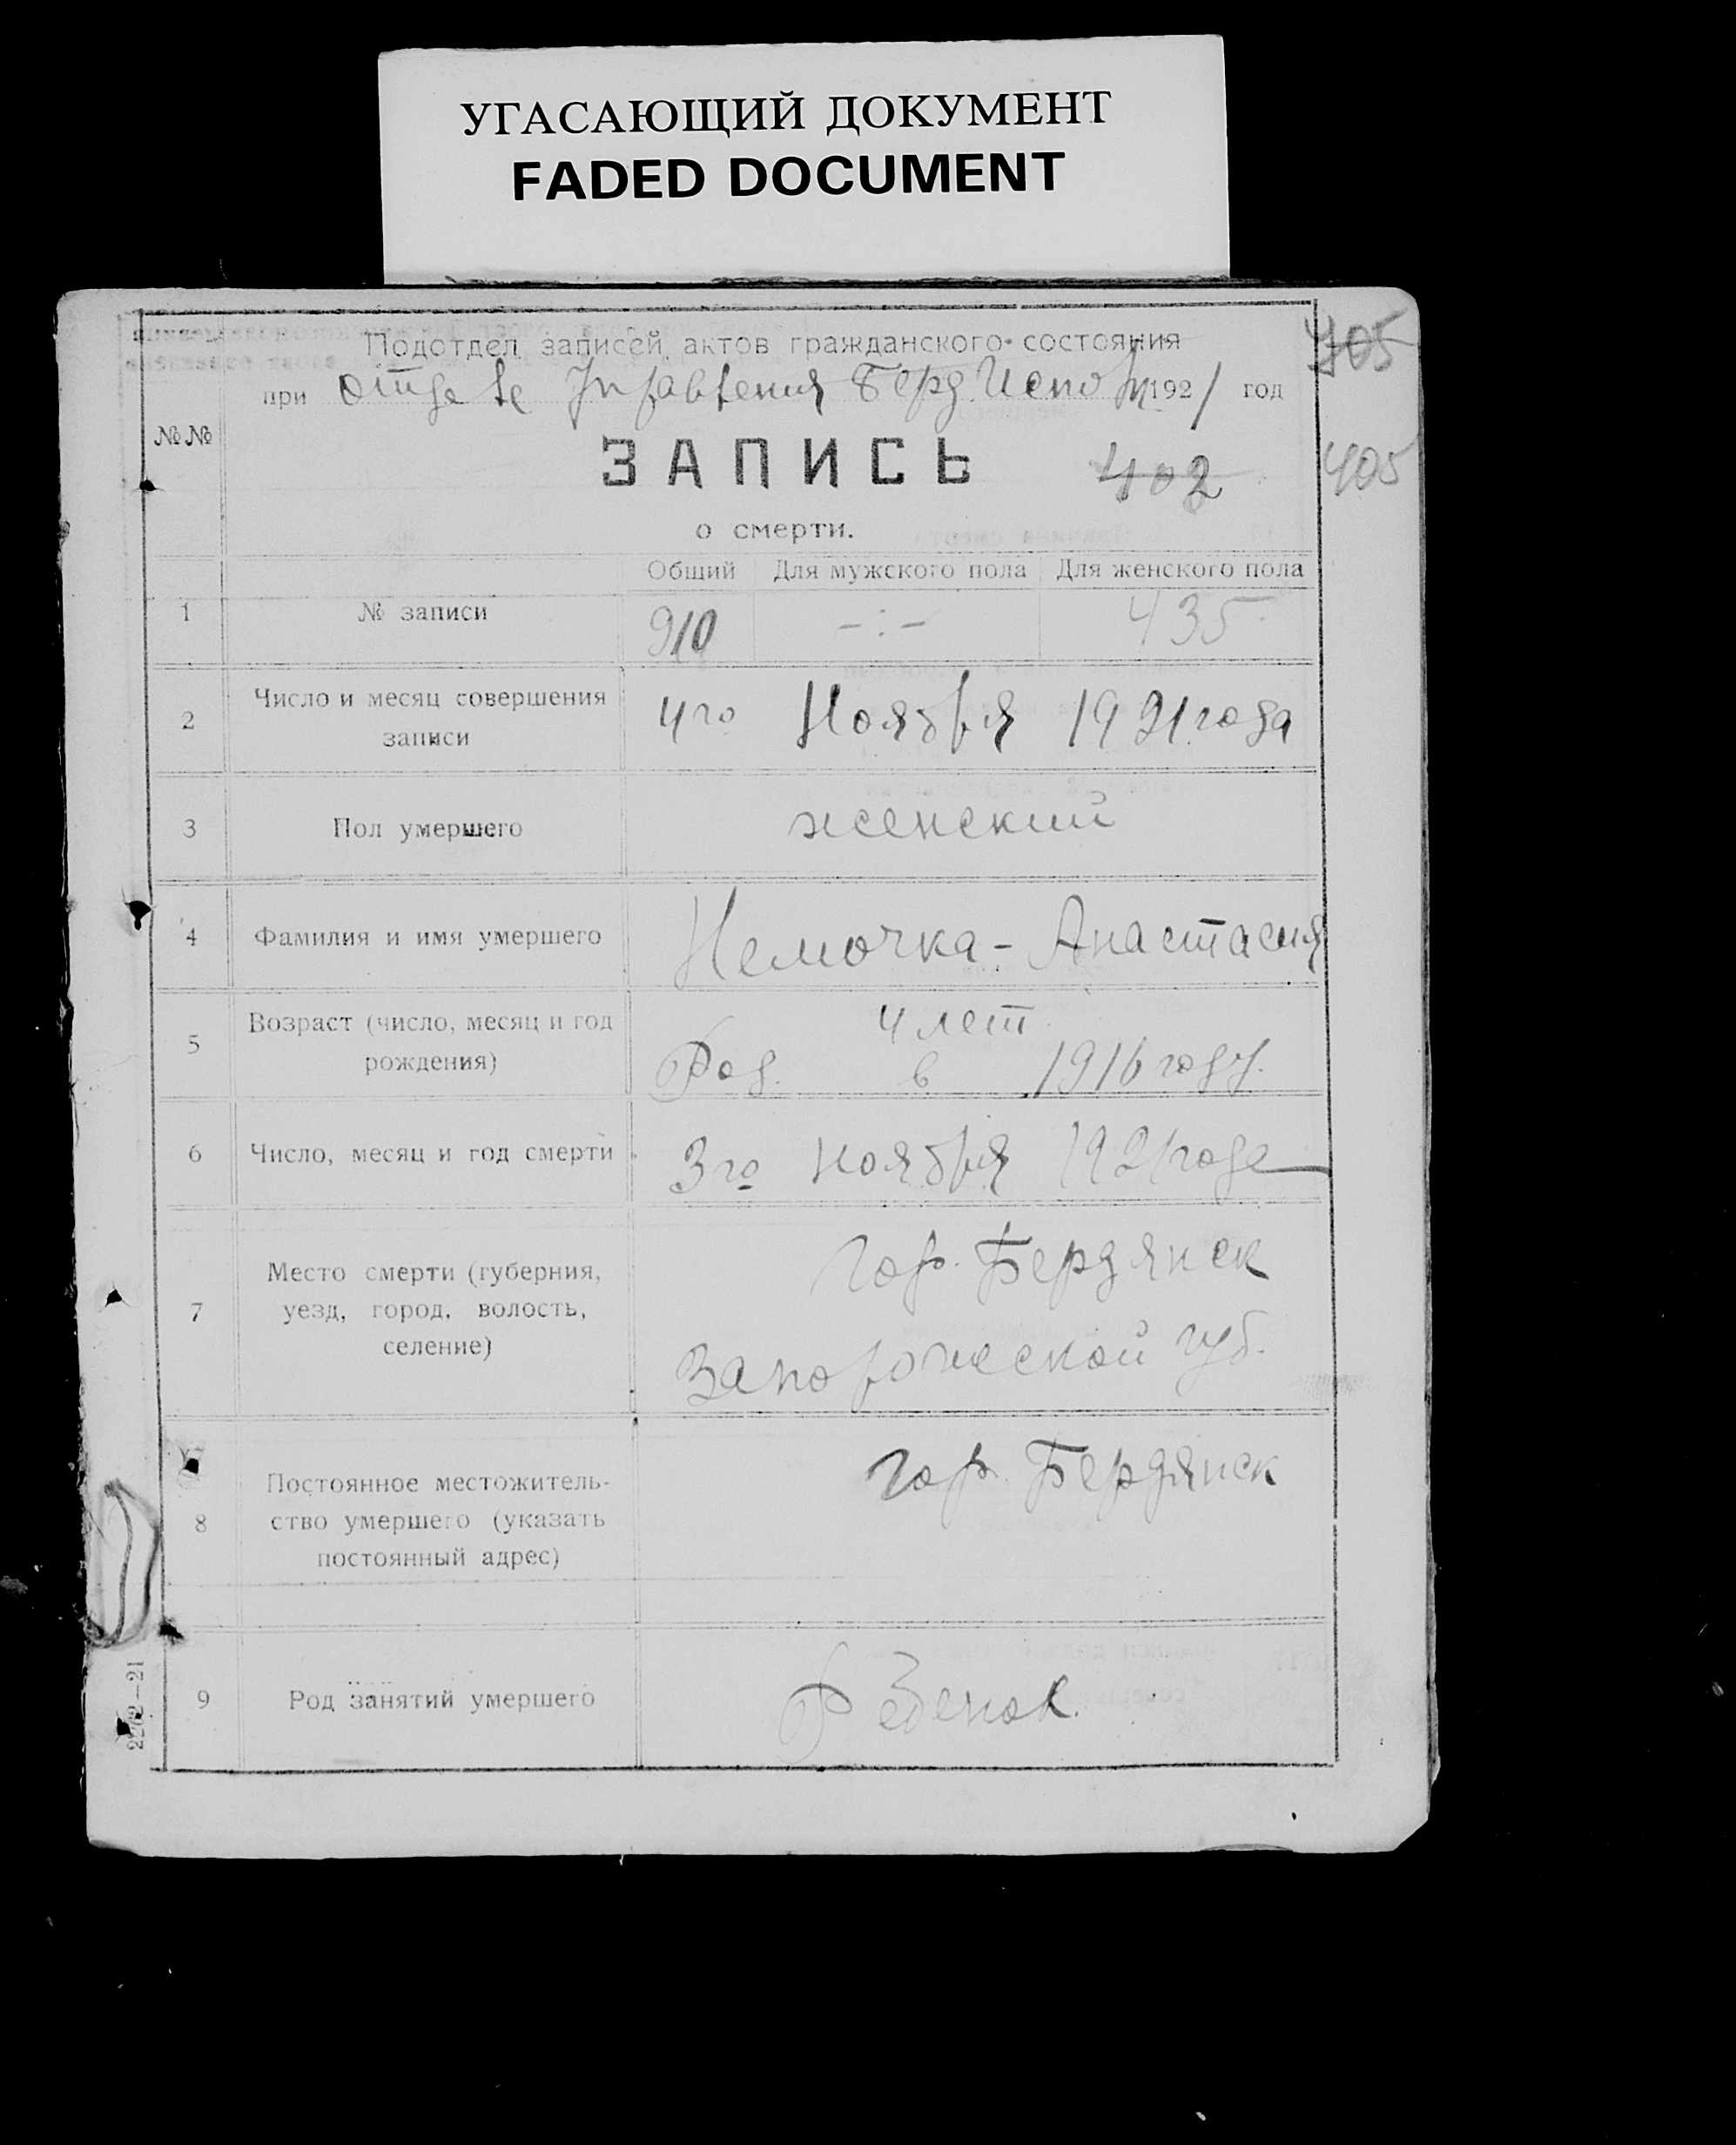 УГАСАЮЩИЙ ДОКУМЕНТ
FADED DOCUMENT
Подотдел записей актов гражданского состояния
при отделе Управления Берд. 1921 год
405
№№
ЗАПИСЬ
402
405
о смерти.
Общий Для мужского пола Для женского пола
1 № записи 910 -:- 435
2 Число и месяц совершения записи 4го Ноября 1921 года
3 Пол умершего женский
4 Фамилия и имя умершего Немочка - Анастасия
5 Возраст (число, месяц и год рождения) 4 лет
Род. в 1916 году.
6 Число, месяц и год смерти 3го ноября 1921 года
7 Место смерти (губерния, уезд, город, волость, селение) Гор. Бердянск
Запорожской губ.
8 Постоянное местожительство умершего (указать постоянный адрес) Гор. Бердянск
9 Род занятий умершего Ребенок.
2262—21